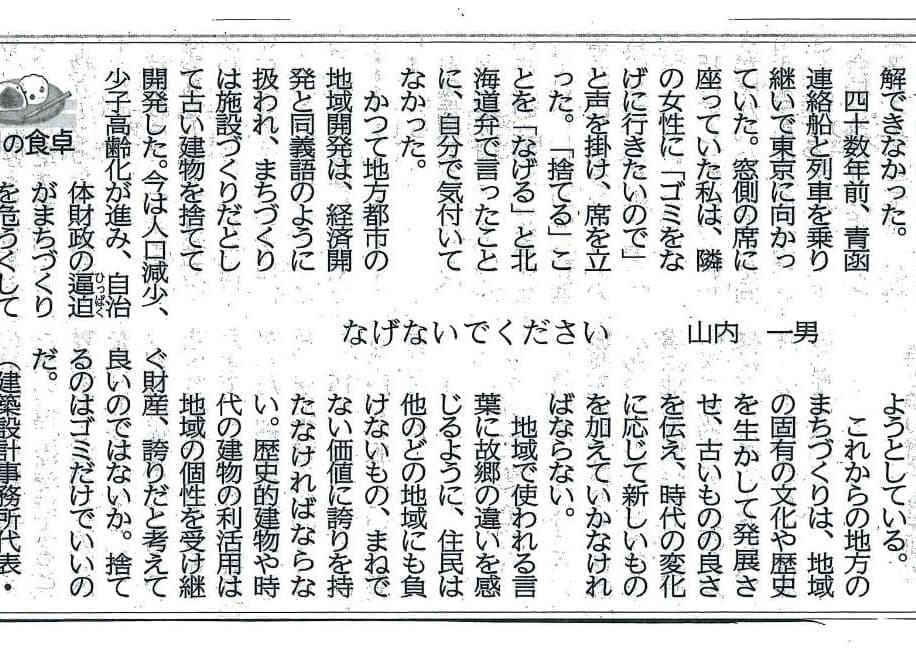 解できなかった。
　四十数年前、青函
連絡船と列車を乗り
継いで東京に向かっ
ていた。窓側の席に
座っていた私は、隣
の女性に「ゴミをな
げに行きたいので」
と声を掛け、席を立
った。「捨てる」こ
とを「なげる」と北
海道弁で言ったこと
に、自分で気付いて
なかった。
　かつて地方都市の
地域開発は、経済開
発と同義語のように
扱われ、まちづくり
は施設づくりだとし
て古い建物を捨てて
開発した。今は人口減少、
少子高齢化が進み、自治
体財政の逼迫
ひっぱく
がまちづくり
を危うくして
の食卓
なげないでください　　山内　一男
ようとしている。
　これからの地方の
まちづくりは、地域
の固有の文化や歴史
を生かして発展さ
せ、古いものの良さ
を伝え、時代の変化
に応じて新しいもの
を加えていかなけれ
ばならない。
　地域で使われる言
葉に故郷の違いを感
じるように、住民は
他のどの地域にも負
けないもの、まねで
ない価値に誇りを持
たなければならな
い。歴史的建物や時
代の建物の利活用は
地域の個性を受け継
ぐ財産、誇りだと考えて
良いのではないか。捨て
るのはゴミだけでいいの
だ。
（建築設計事務所代表・